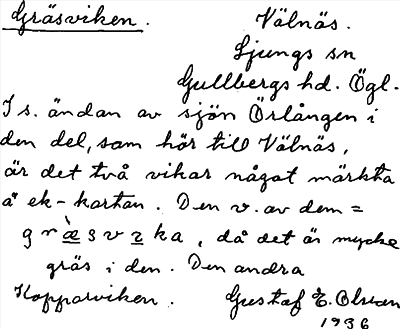 Gräsviken. Välnäs.
Ljungs sn
Gullbergs hd. Ögl.
I s. ändan av sjön Örlången i
den del, som hör till Välnäs,
är det två vikar något märkta
å ek-kartan. Den v. av dem =
gr̀æsvɩka, då det är mycke
gräs i den. Den andra
Kopparviken. Gustaf E. Olsson
1936